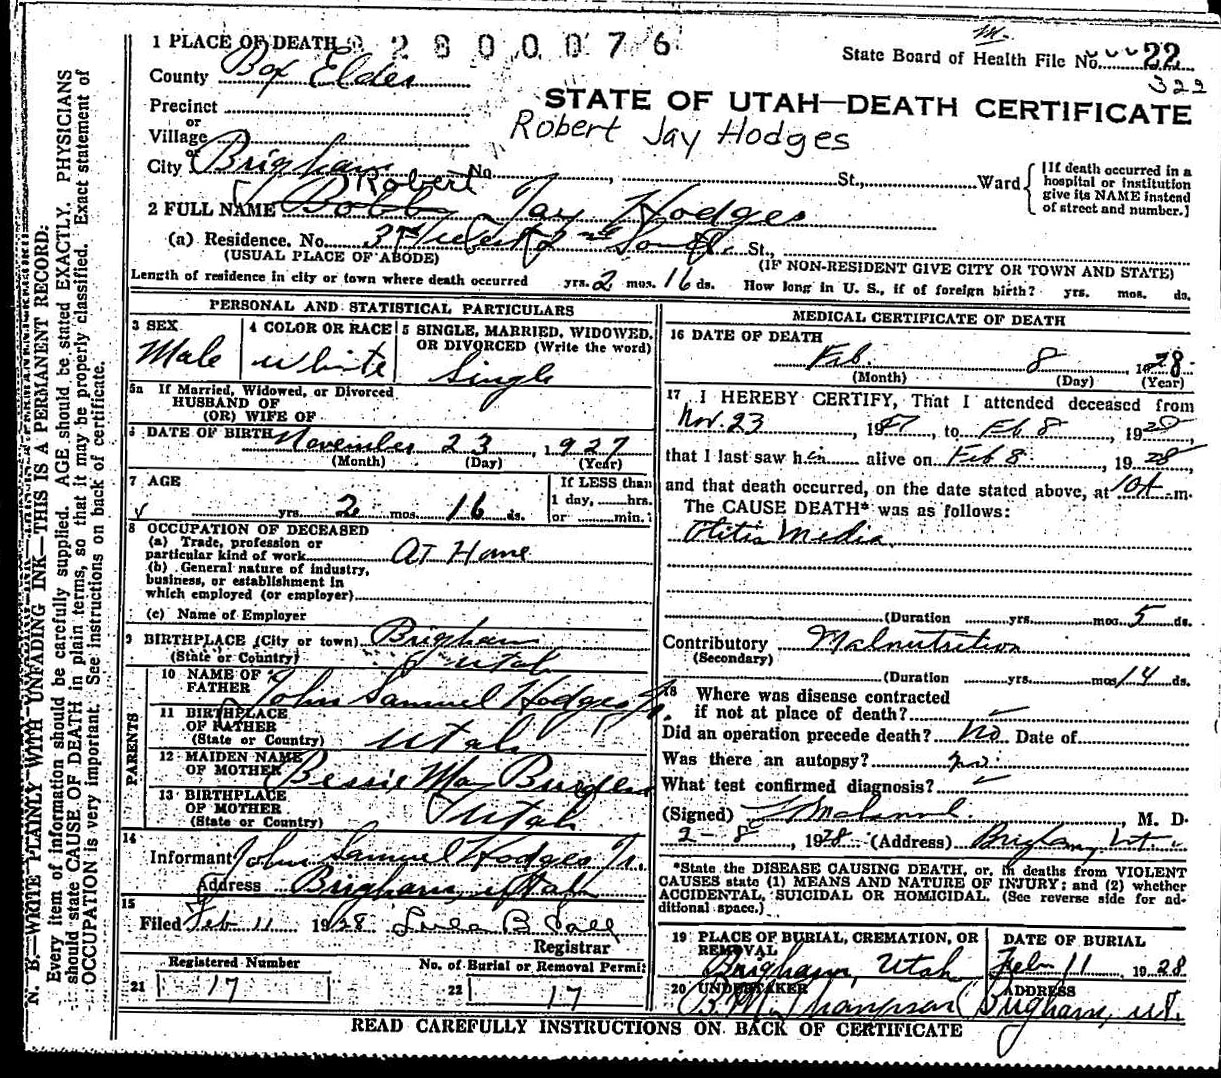 N. B.—WRITE PLAINLY WITH UNFADING INK—THIS IS A PERMANENT RECORD.
Every item of information should be carefully supplied. AGE should be stated EXACTLY. PHYSICIANS
should state CAUSE OF DEATH in plain terms, so that it may be properly classified. Exact statement of
OCCUPATION is very important. See instructions on back of certificate.
1 PLACE OF DEATH 2800076
State Board of Health File No. 22
322
County Box Elder
STATE OF UTAH—DEATH CERTIFICATE
Robert Jay Hodges
Precinct
or
Village
or
City Brigham No. St., Ward
[If death occurred in a
hospital or institution
give its NAME instead
of street and number.]
Robert
2 FULL NAME Bobby Jay Hodges
(a) Residence. No. 3rd West 2nd South St.,
(USUAL PLACE OF ABODE) (IF NON-RESIDENT GIVE CITY OR TOWN AND STATE)
Length of residence in city or town where death occurred yrs. 2 mos. 16 ds. How long in U. S., if of foreign birth? yrs. mos. ds.
PERSONAL AND STATISTICAL PARTICULARS
3 SEX Male
4 COLOR OR RACE White
5 SINGLE, MARRIED, WIDOWED,
OR DIVORCED (Write the word)
Single
5a If Married, Widowed, or Divorced
HUSBAND OF
(OR) WIFE OF
6 DATE OF BIRTH November 23, 1927
(Month) (Day) (Year)
7 AGE
yrs. 2 mos. 16 ds.
If LESS than
1 day, hrs.
or min.
8 OCCUPATION OF DECEASED
(a) Trade, profession or
particular kind of work At Home
(b) General nature of industry,
business, or establishment in
which employed (or employer)
(c) Name of Employer
9 BIRTHPLACE (City or town) Brigham
(State or Country) Utah
PARENTS
10 NAME OF
FATHER John Samuel Hodges Jr.
11 BIRTHPLACE
OF FATHER
(State or Country) Utah
12 MAIDEN NAME
OF MOTHER Bessie May
13 BIRTHPLACE
OF MOTHER
(State or Country) Utah
14
Informant John Samuel Hodges Jr.
Address Brigham, Utah
15
Filed Feb 11 1928
Registrar
Registered Number
21 17
No. of Burial or Removal Permit
22 17
MEDICAL CERTIFICATE OF DEATH
16 DATE OF DEATH
Feb. 8 1928
(Month) (Day) (Year)
17 I HEREBY CERTIFY, That I attended deceased from
Nov. 23, 1927, to Feb 8, 1928,
that I last saw h alive on Feb 8, 1928,
and that death occurred, on the date stated above, at 10A m.
The CAUSE DEATH* was as follows:
Otitis Media
(Duration yrs. mos. 5 ds.
Contributory Malnutrition
(Secondary)
(Duration yrs. mos. 14 ds.
18 Where was disease contracted
if not at place of death?
Did an operation precede death? No Date of
Was there an autopsy? no
What test confirmed diagnosis?
(Signed) M. D.
2-8, 1928 (Address) Brigham, Ut.
*State the DISEASE CAUSING DEATH, or, in deaths from VIOLENT
CAUSES state (1) MEANS AND NATURE OF INJURY; and (2) whether
ACCIDENTAL, SUICIDAL OR HOMICIDAL. (See reverse side for ad-
ditional space.)
19 PLACE OF BURIAL, CREMATION, OR
REMOVAL
Brigham, Utah
DATE OF BURIAL
Feb 11, 1928
20 UNDERTAKER
Thompson
ADDRESS
Brigham, Ut.
READ CAREFULLY INSTRUCTIONS ON BACK OF CERTIFICATE